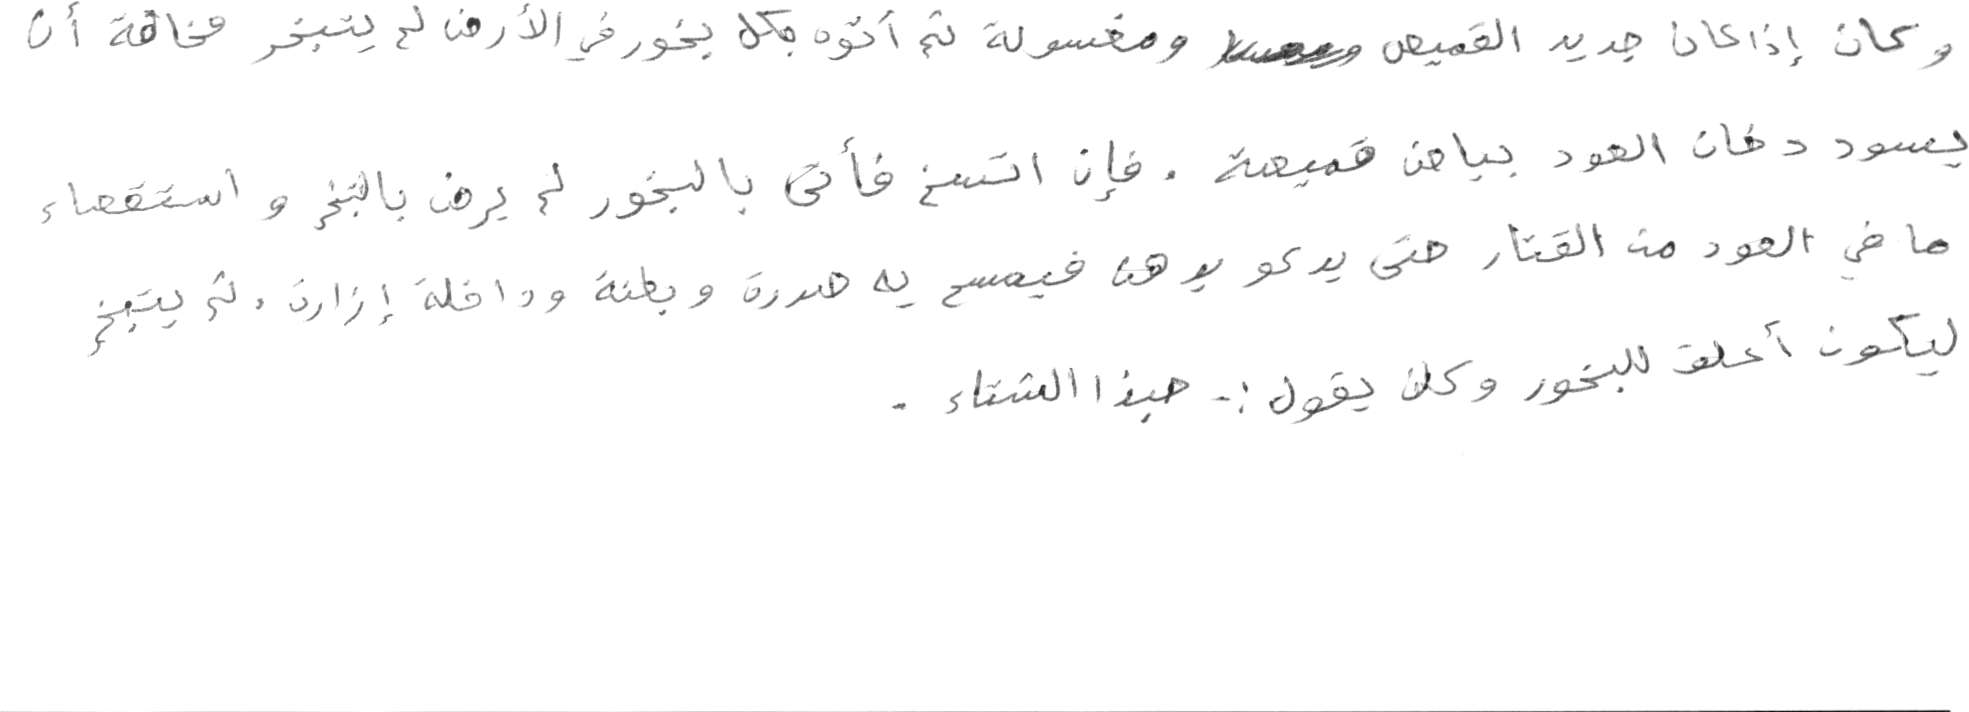 وكان إذا كان جديد القميص ومغسولة ثم أتوه بكل بخور في الأرض لم يتبخر مخافة أن
يسود دخان العود بياض قميصة . فإن اتسخ فأتى بالبخور لم يرض بالتبخر و استقصاء
ما في العود من القتار حتى يدعو بدهن فيمسح به صدرة وبطنة وداخلة إزارة . ثم يتبخر
ليكون أعلق للبخور وكان يقول :- حبذا الشتاء .